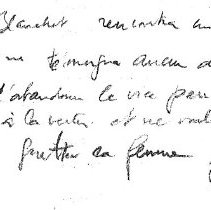 Blanchet rencontra un
ne témoigna aucun d
d'abandonner le vice pour
à la vertu et ne voul
quitter sa femme